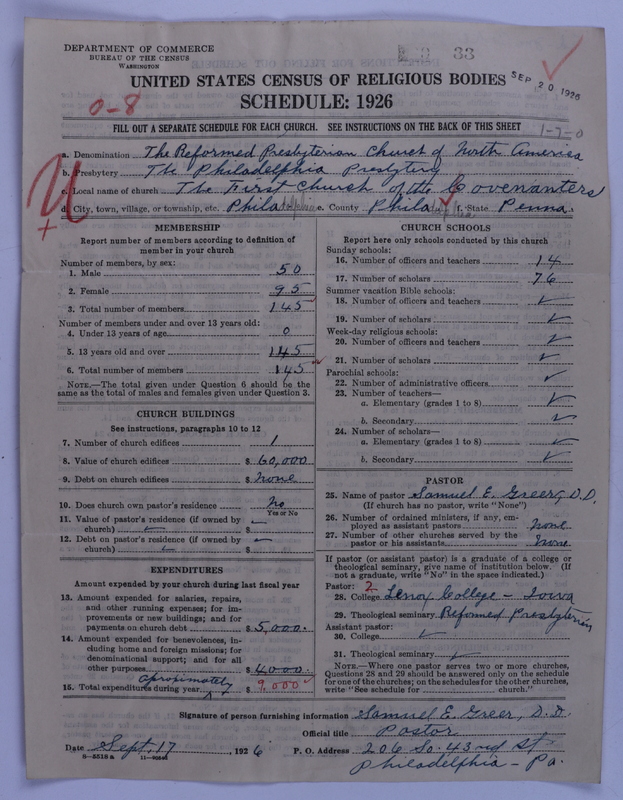 DEPARTMENT OF COMMERCE
BUREAU OF THE CENSUS
WASHINGTON
33
SEP 20 1926
UNITED STATES CENSUS OF RELIGIOUS BODIES
SCHEDULE: 1926
0-8
FILL OUT A SEPARATE SCHEDULE FOR EACH CHURCH. SEE INSTRUCTIONS ON THE BACK OF THIS SHEET
1-7-0
a. Denomination The Reformed Presbyterian Church of North America
b. Presbytery The Philadelphia Presbytery
c. Local name of church The First Church of the Covenanters
d. City, town, village, or township, etc. Philadelphia e. County Philadelphia f. State Penna.
MEMBERSHIP
Report number of members according to definition of
member in your church
Number of members, by sex:
1. Male 50
2. Female 95
3. Total number of members 145
Number of members under and over 13 years old:
4. Under 13 years of age 0
5. 13 years old and over 145
6. Total number of members 145
NOTE.—The total given under Question 6 should be the
same as the total of males and females given under Question 3.
CHURCH BUILDINGS
See instructions, paragraphs 10 to 12
7. Number of church edifices 1
8. Value of church edifices $ 60,000
9. Debt on church edifices $ None
10. Does church own pastor's residence No
Yes or No
11. Value of pastor's residence (if owned by
church) $
12. Debt on pastor's residence (if owned by
church) $
EXPENDITURES
Amount expended by your church during last fiscal year
13. Amount expended for salaries, repairs,
and other running expenses; for im-
provements or new buildings; and for
payments on church debt $ 5,000.
14. Amount expended for benevolences, in-
cluding home and foreign missions; for
denominational support; and for all
other purposes $ 4000.
aproximately
15. Total expenditures during year $ 9,000
CHURCH SCHOOLS
Report here only schools conducted by this church
Sunday schools:
16. Number of officers and teachers 14
17. Number of scholars 76
Summer vacation Bible schools:
18. Number of officers and teachers ✓
19. Number of scholars ✓
Week-day religious schools:
20. Number of officers and teachers ✓
21. Number of scholars ✓
Parochial schools:
22. Number of administrative officers ✓
23. Number of teachers—
a. Elementary (grades 1 to 8) ✓
b. Secondary ✓
24. Number of scholars—
a. Elementary (grades 1 to 8) ✓
b. Secondary ✓
PASTOR
25. Name of pastor Samuel E. Greer, D.D.
(If church has no pastor, write "None")
26. Number of ordained ministers, if any, em-
ployed as assistant pastors None
27. Number of other churches served by the
pastor or his assistants None
If pastor (or assistant pastor) is a graduate of a college or
theological seminary, give name of institution below. (If
not a graduate, write "No" in the space indicated.)
Pastor: 2
28. College Lenox College - Iowa
29. Theological seminary Reformed Presbyterian
Assistant pastor:
30. College ✓
31. Theological seminary ✓
NOTE.—Where one pastor serves two or more churches,
Questions 28 and 29 should be answered only on the schedule
for one of the churches; on the schedules for the other churches,
write "See schedule for church."
Signature of person furnishing information Samuel E. Greer, D.D.
Official title Pastor
Date Sept. 17, 1926 P. O. Address 206 So. 43rd St.
Philadelphia - Pa.